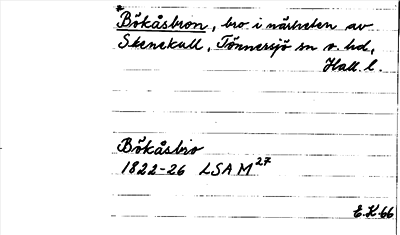 *Bökåsbron, bro i närheten av
Skenekull, Tönnersjö sn o. hd,
Hall. l.
Bökåsbro
1822-26 LSA M27
E.K 66